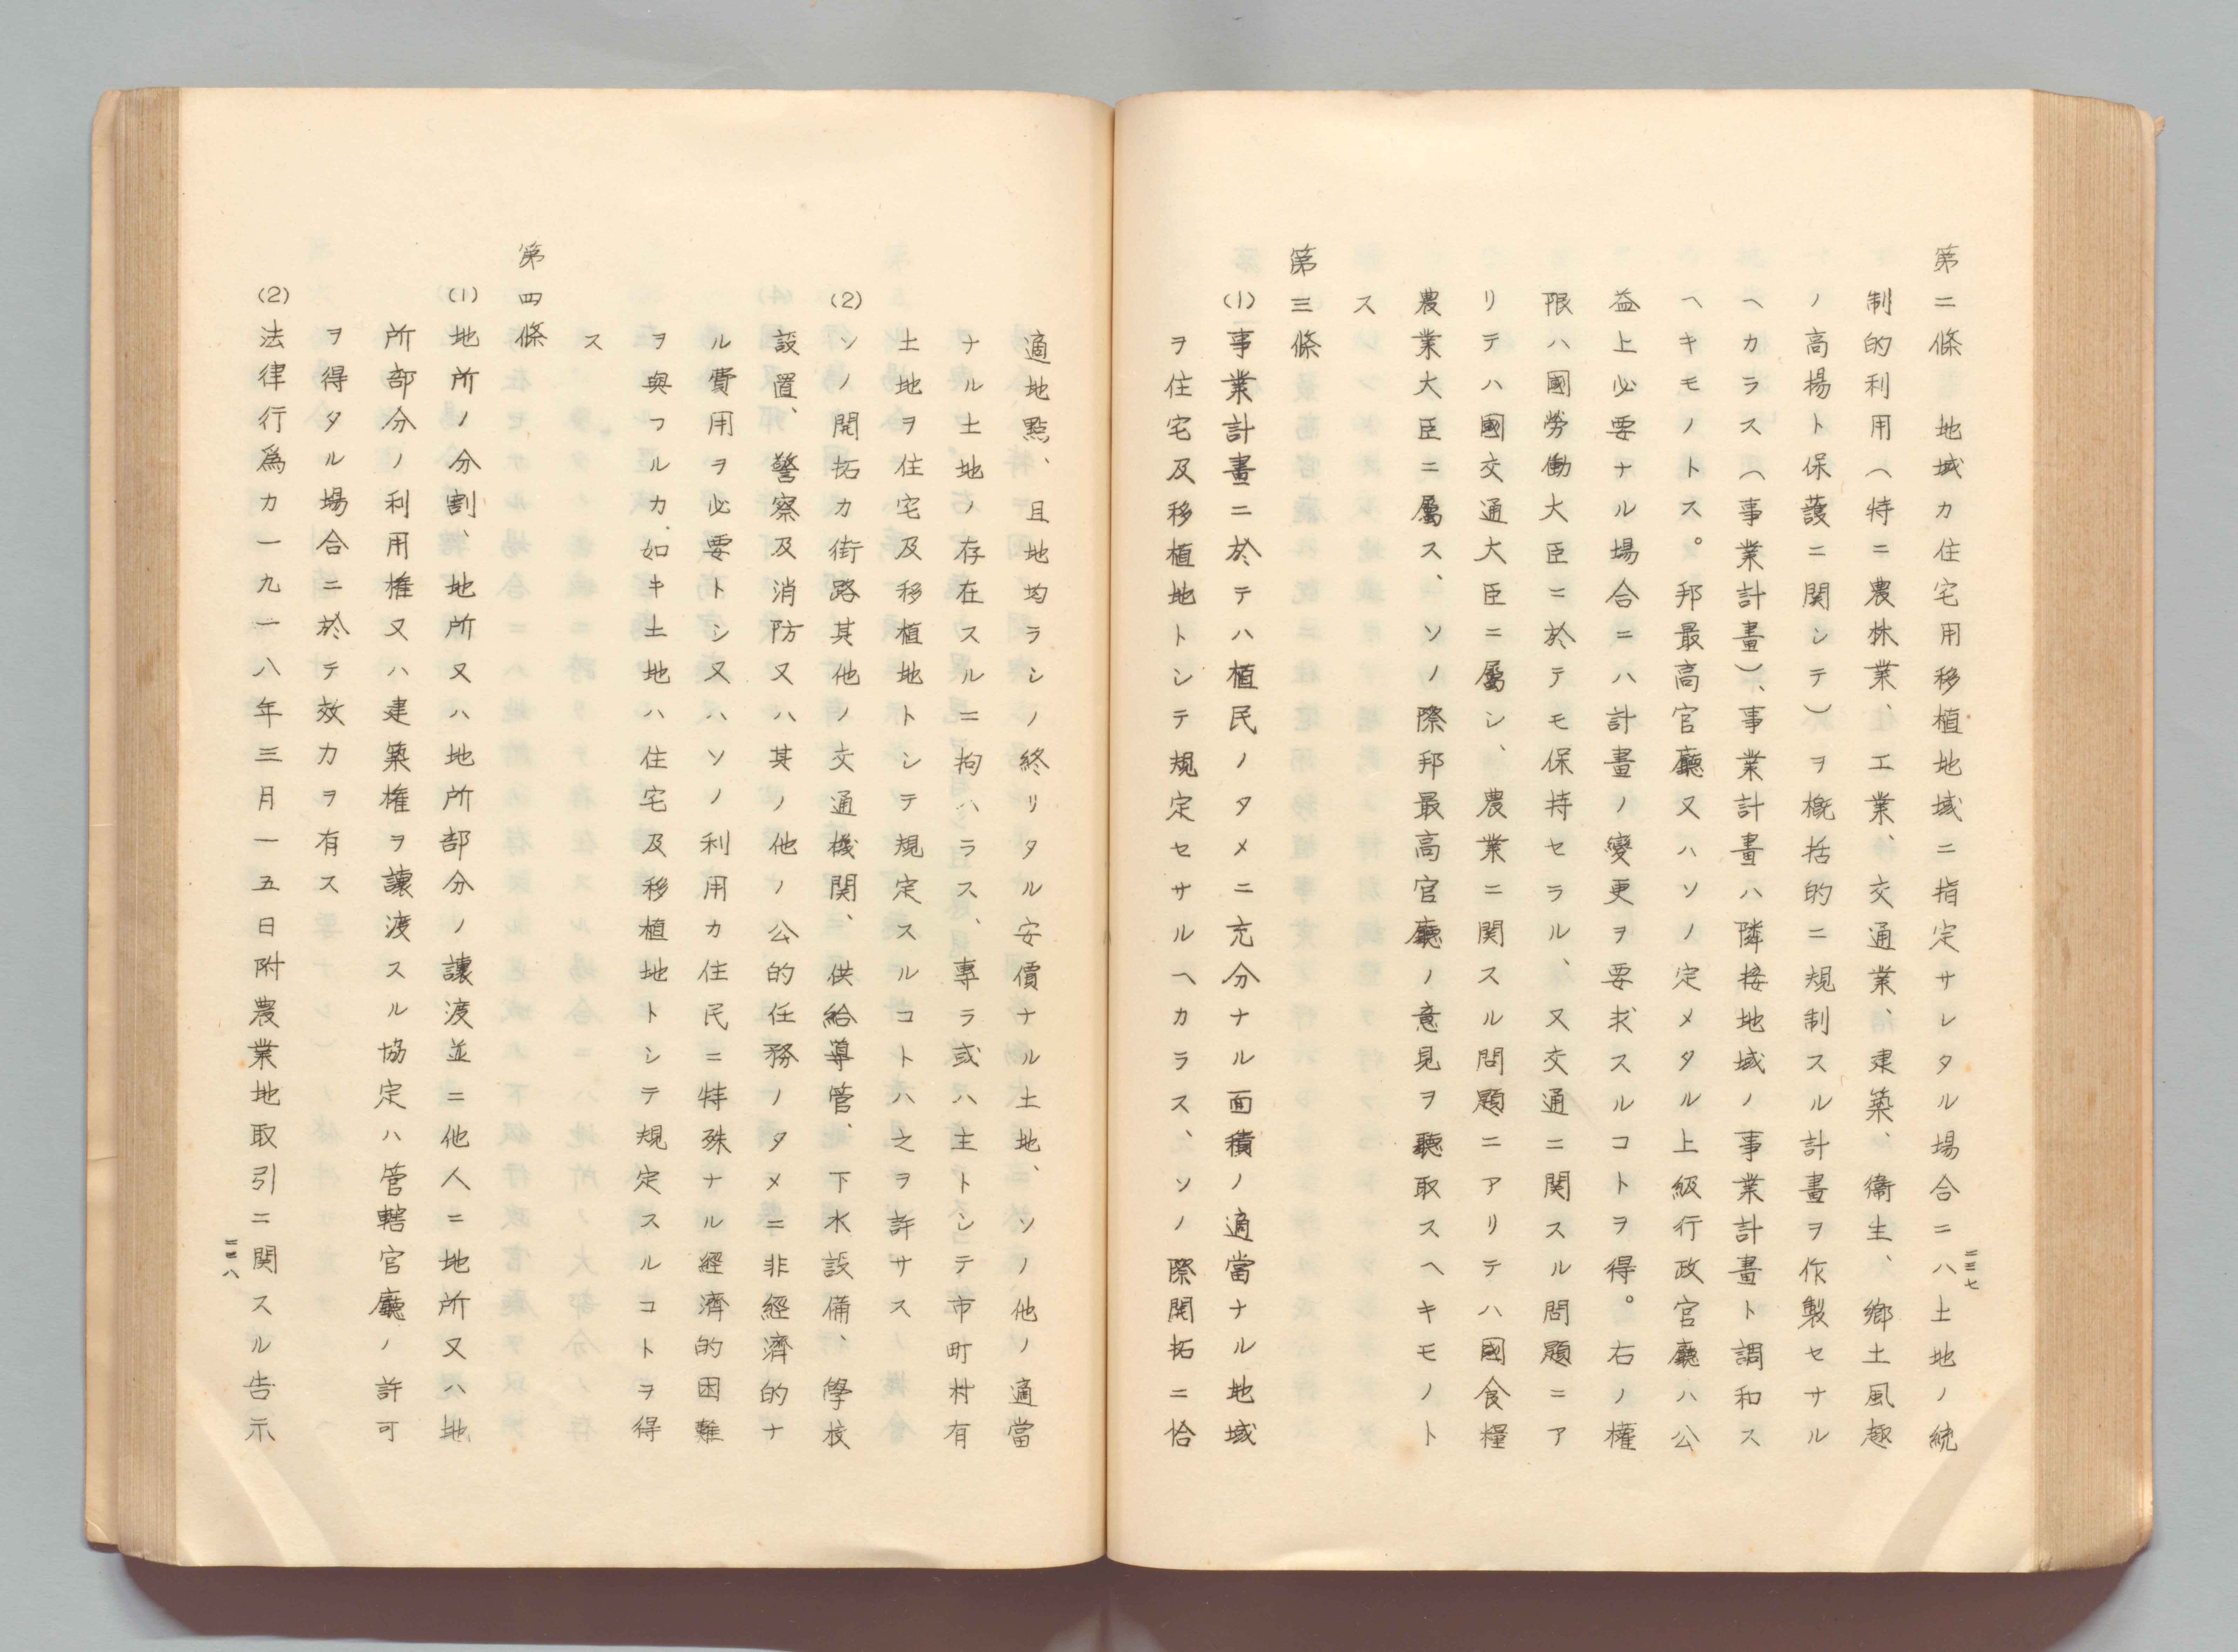 第二條　地域カ住宅用移植地域ニ指定サレタル場合ニハ土地ノ統
制的利用（特ニ農林業、工業、交通業、建築、衞生、鄕土風趣
ノ高揚ト保護ニ関シテ）ヲ槪括的ニ規制スル計畫ヲ作製セサル
ヘカラス（事業計畫）、事業計畫ハ隣接地域ノ事業計畫ト調和ス
ヘキモノトス。邦最高官廳又ハソノ定メタル上級行政官廳ハ公
益上必要ナル場合ニハ計畫ノ變更ヲ要求スルコトヲ得。右ノ權
限ハ國勞働大臣ニ於テモ保持セラル、又交通ニ関スル問題ニア
リテハ國交通大臣ニ屬シ、農業ニ関スル問題ニアリテハ國食糧
農業大臣ニ屬ス、ソノ際邦最高官廳ノ意見ヲ聽取スヘキモノト
ス
第三條
(1)事業計畫ニ於テハ植民ノタメニ充分ナル面積ノ適當ナル地域
ヲ住宅及移植地トシテ規定セサルヘカラス、ソノ際開拓ニ恰
三四七
適地點、且地均ラシノ終リタル安價ナル土地、ソノ他ノ適當
ナル土地ノ存在スルニ拘ハラス、專ラ或ハ主トシテ市町村有
土地ヲ住宅及移植地トシテ規定スルコトハ之ヲ許サス
(2)ソノ開拓カ街路其他ノ交通機関、供給導管、下水設備、學校
設置、警察及消防又ハ其ノ他ノ公的任務ノタメニ非經濟的ナ
ル費用ヲ必要トシ又ハソノ利用カ住民ニ特殊ナル經濟的困難
ヲ與フルカ如キ土地ハ住宅及移植地トシテ規定スルコトヲ得
ス
第四條
(1)地所ノ分割、地所又ハ地所部分ノ讓渡並ニ他人ニ地所又ハ地
所部分ノ利用權又ハ建築權ヲ讓渡スル協定ハ管轄官廳ノ許可
ヲ得タル場合ニ於テ效力ヲ有ス
(2)法律行爲カ一九一八年三月一五日附農業地取引ニ関スル告示
三四八